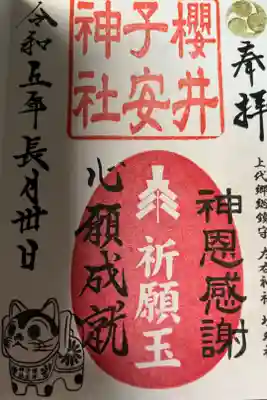 奉拝
上代郷総鎮守
櫻井
子安
神社
神恩感謝
祈願玉
心願成就
令和五年長月卅日